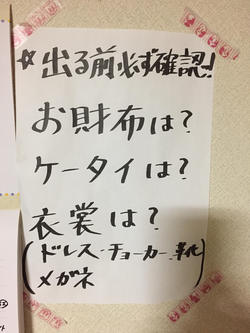 ☆出る前必ず確認!
お財布は?
ケータイは?
衣裳は?
(ドレス・チョーカー・靴)
メガネ